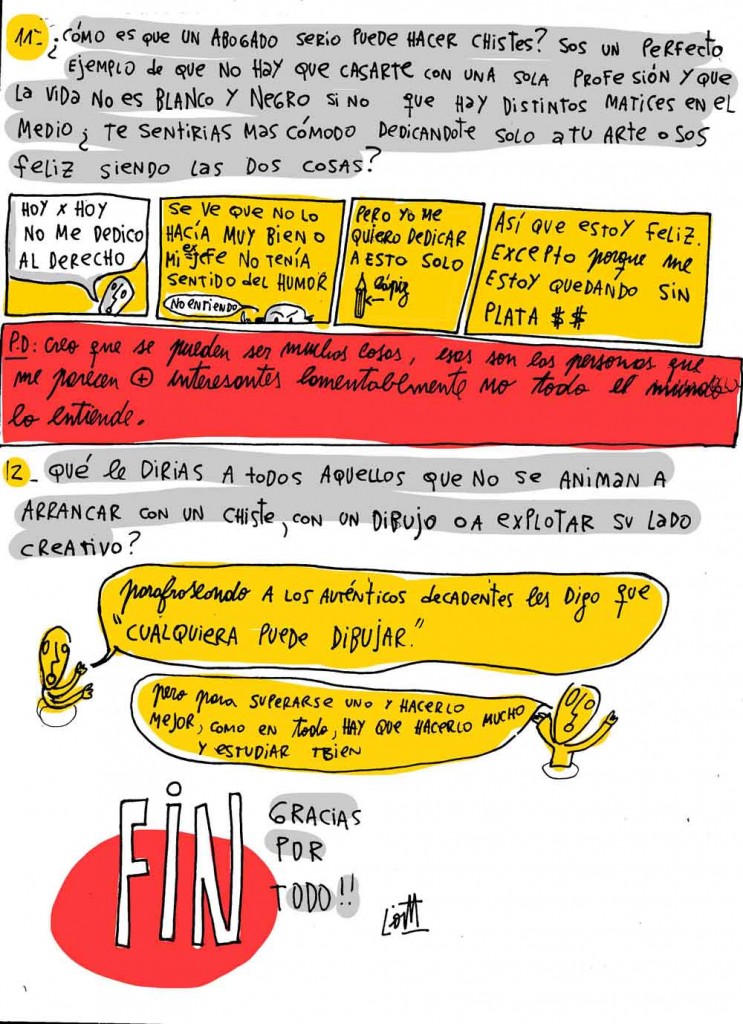 11- ¿CÓMO ES QUE UN ABOGADO SERIO PUEDE HACER CHISTES? SOS UN PERFECTO
EJEMPLO DE QUE NO HAY QUE CASARTE CON UNA SOLA PROFESIÓN Y QUE
LA VIDA NO ES BLANCO Y NEGRO SI NO QUE HAY DISTINTOS MATICES EN EL
MEDIO ¿ TE SENTIRIAS MAS CÓMODO DEDICANDOTE SOLO A TU ARTE O SOS
FELIZ SIENDO LAS DOS COSAS?
HOY X HOY
NO ME DEDICO
AL DERECHO
SE VE QUE NO LO
HACÍA MUY BIEN O
MI EX JEFE NO TENÍA
SENTIDO DEL HUMOR
NO ENTIENDO
PERO YO ME
QUIERO DEDICAR
A ESTO SOLO
lápiz
ASÍ QUE ESTOY FELIZ.
EXCEPTO PORQUE ME
ESTOY QUEDANDO SIN
PLATA $$
P.D: Creo que se pueden ser muchas cosas, esas son las personas que
me parecen + interesantes lamentablemente no todo el mundo
lo entiende.
12- QUÉ LE DIRIAS A TODOS AQUELLOS QUE NO SE ANIMAN A
ARRANCAR CON UN CHISTE, CON UN DIBUJO O A EXPLOTAR SU LADO
CREATIVO?
parafraseando A LOS AUTÉNTICOS DECADENTES les DIGO QUE
"CUALQUIERA PUEDE DIBUJAR."
pero para SUPERARSE UNO Y HACERLO
MEJOR, COMO EN todo, HAY QUE HACERLO MUCHO
Y ESTUDIAR TBIEN
FIN
GRACIAS
POR
TODO!!